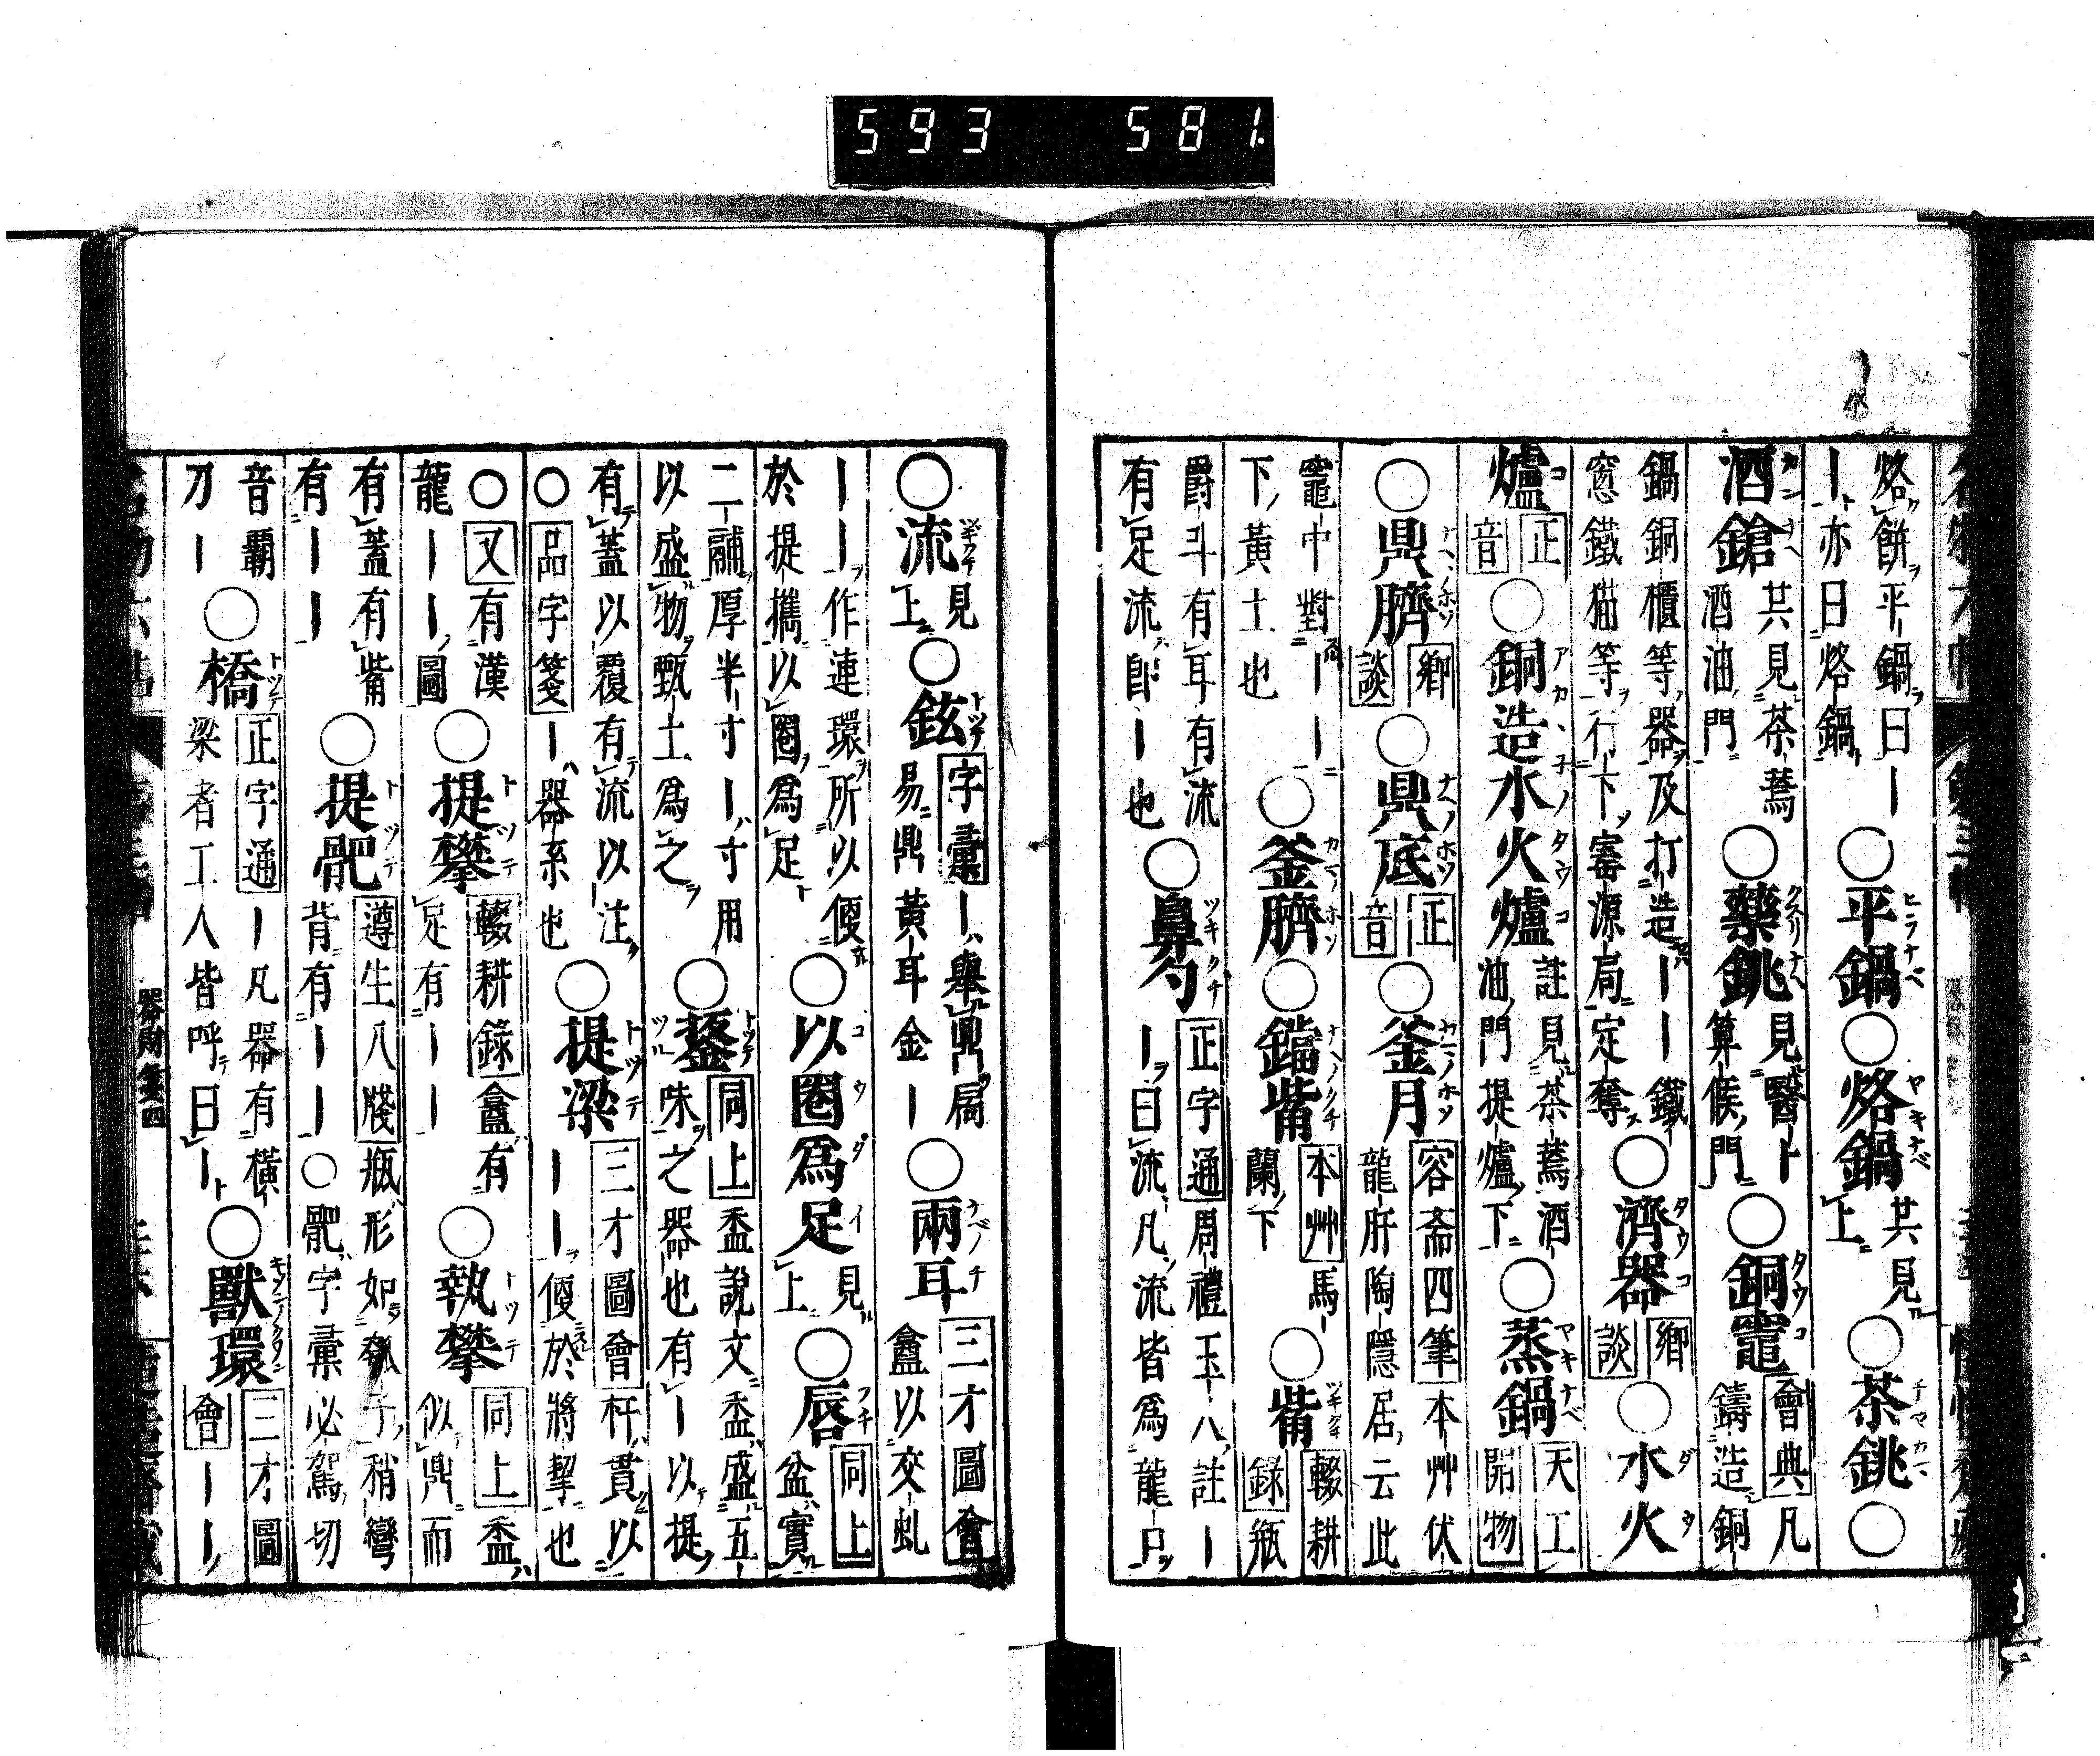 593 581.
烙餅平鍋曰｜
｜亦曰烙鍋
○平鍋ヒラナベ○烙鍋ヤキナベ
共見
上
○茶銚○
酒鎗
共見茶蔫
酒油門
○藥銚クスリナヘ
見醫｜
算候門
○銅竈タウコ
會典凡
鑄造銅
鍋銅櫃等器及打造｜｜鐵
窓鐵猫等行下審源局定奪
○濟器タウコ
鄉
談
○水火
爐
正
音
○銅造水火爐
註見茶蔫酒
油門提爐下
○蒸鍋
天工
開物
○鼎臍
鄉
談
○鼎底
正
音
○釜月
容斎四筆本艸伏
龍肝陶隱居云此
竈中對｜｜
下黃土也
○釜臍○鐺觜
本艸馬
蘭下
○觜
輟耕
錄瓶
爵斗有耳有流
有足流卽｜也
○鼻勺ツキクチ
正字通周禮玉人註｜
｜曰流凡流皆爲龍口
○流
見
上
○鉉
字彙｜擧鼎扄
易鼎黃耳金｜
○兩耳
三才圖會
盦以交虬
｜｜作連環所以便
於提攜以圈爲足
○以圈爲足
見
上
○唇
同上
盆實
二鬴厚半寸｜寸用
以盛物甄土爲之
○鋬
同上盉說文盉盛五
味之器也有｜以提
有蓋以覆有流以注
○品字箋｜器系也
○提梁トツテ
三才圖會杆貫以
｜｜便於將挈也
○又有漢
龍｜｜圖
○提攀トツテ
輟耕錄盦有
足有｜｜
○執攀トツテ
同上盉
似鼎而
有蓋有觜
有｜｜
○提靶トツテ
遵生八牋瓶形如瓠子稍彎
背有｜｜○靶字彙必駕切
音霸
刀｜
○橋トツテ
正字通｜凡器有橫
梁者工人皆呼曰｜
○獸環
三才圖
會｜｜
器財箋四